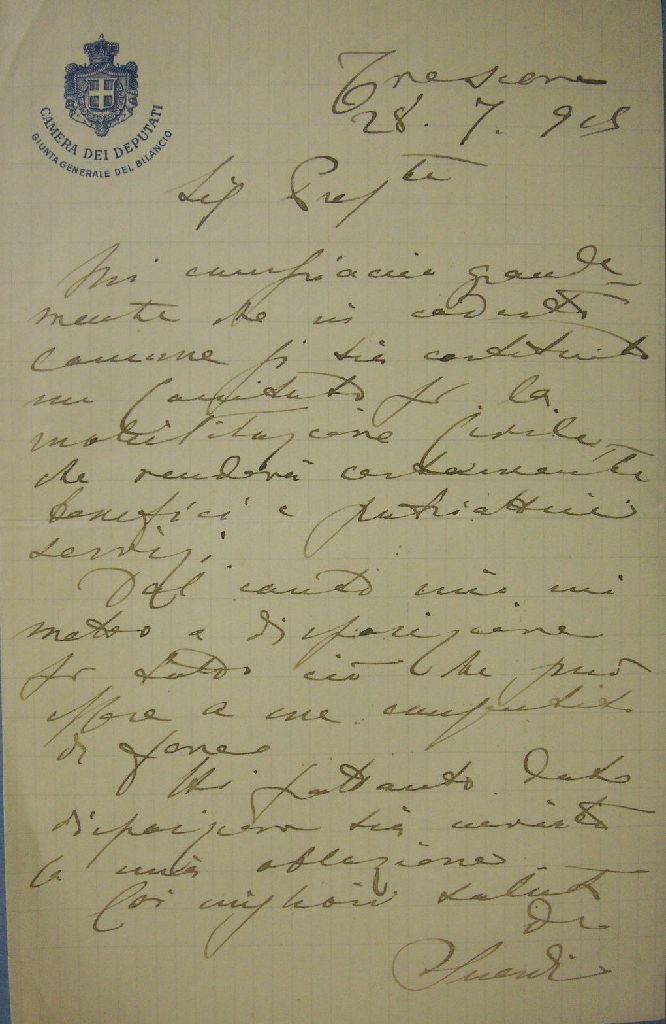 CAMERA DEI DEPUTATI
GIUNTA GENERALE DEL BILANCIO
Trescore
28. 7. 915
Sig Pres.te
Mi compiaccio grande-
mente che in codesto
Comune si sia costituito
un Comitato pr la
mobilitazione Civile,
che renderà certamente
benefici e patriottici
servizi.
Dal canto mio mi
metto a disposizione
pr tutto ciò che può
essere a me consentito
di fare.
Ho frattanto dato
disposizione sia inviata
la mia oblazione
Coi migliori saluti
Suardi